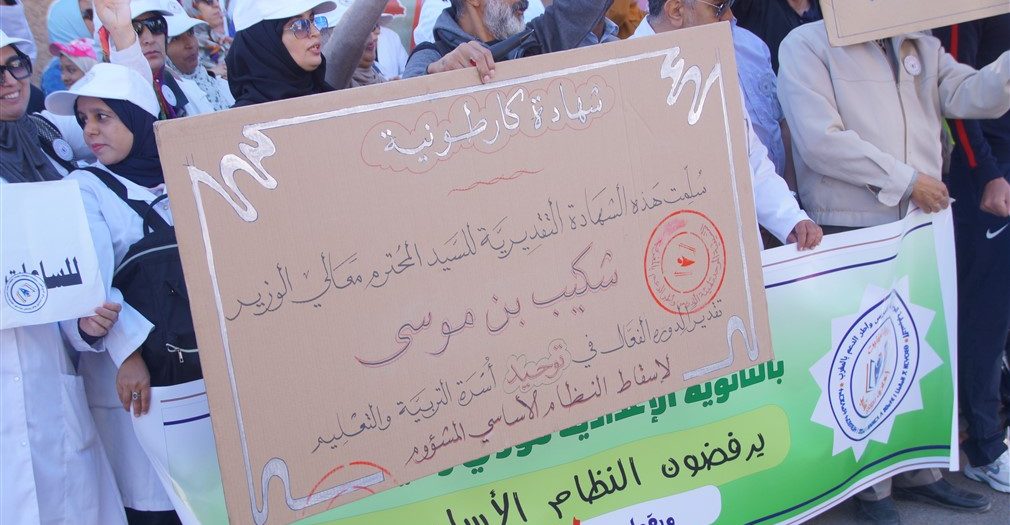 شهادة كارطونية
سُلّمت هذه الشهادة التقديرية للسيد المحترم معالي الوزير
شكيب بن موسى
تقدير الدوره الفعال في توحيد أسرة التربية والتعليم
لإسقاط النظام الأساسي المشؤوم
بالثانوية الإعدادية
يرفضون النظام